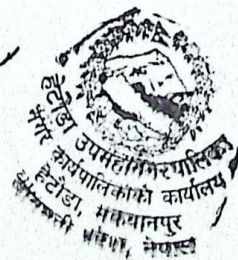 हेटौंडा उपमहानगरपालिका
नगर कार्यपालिकाको कार्यालय
हेटौंडा, मकवानपुर
नेपाल